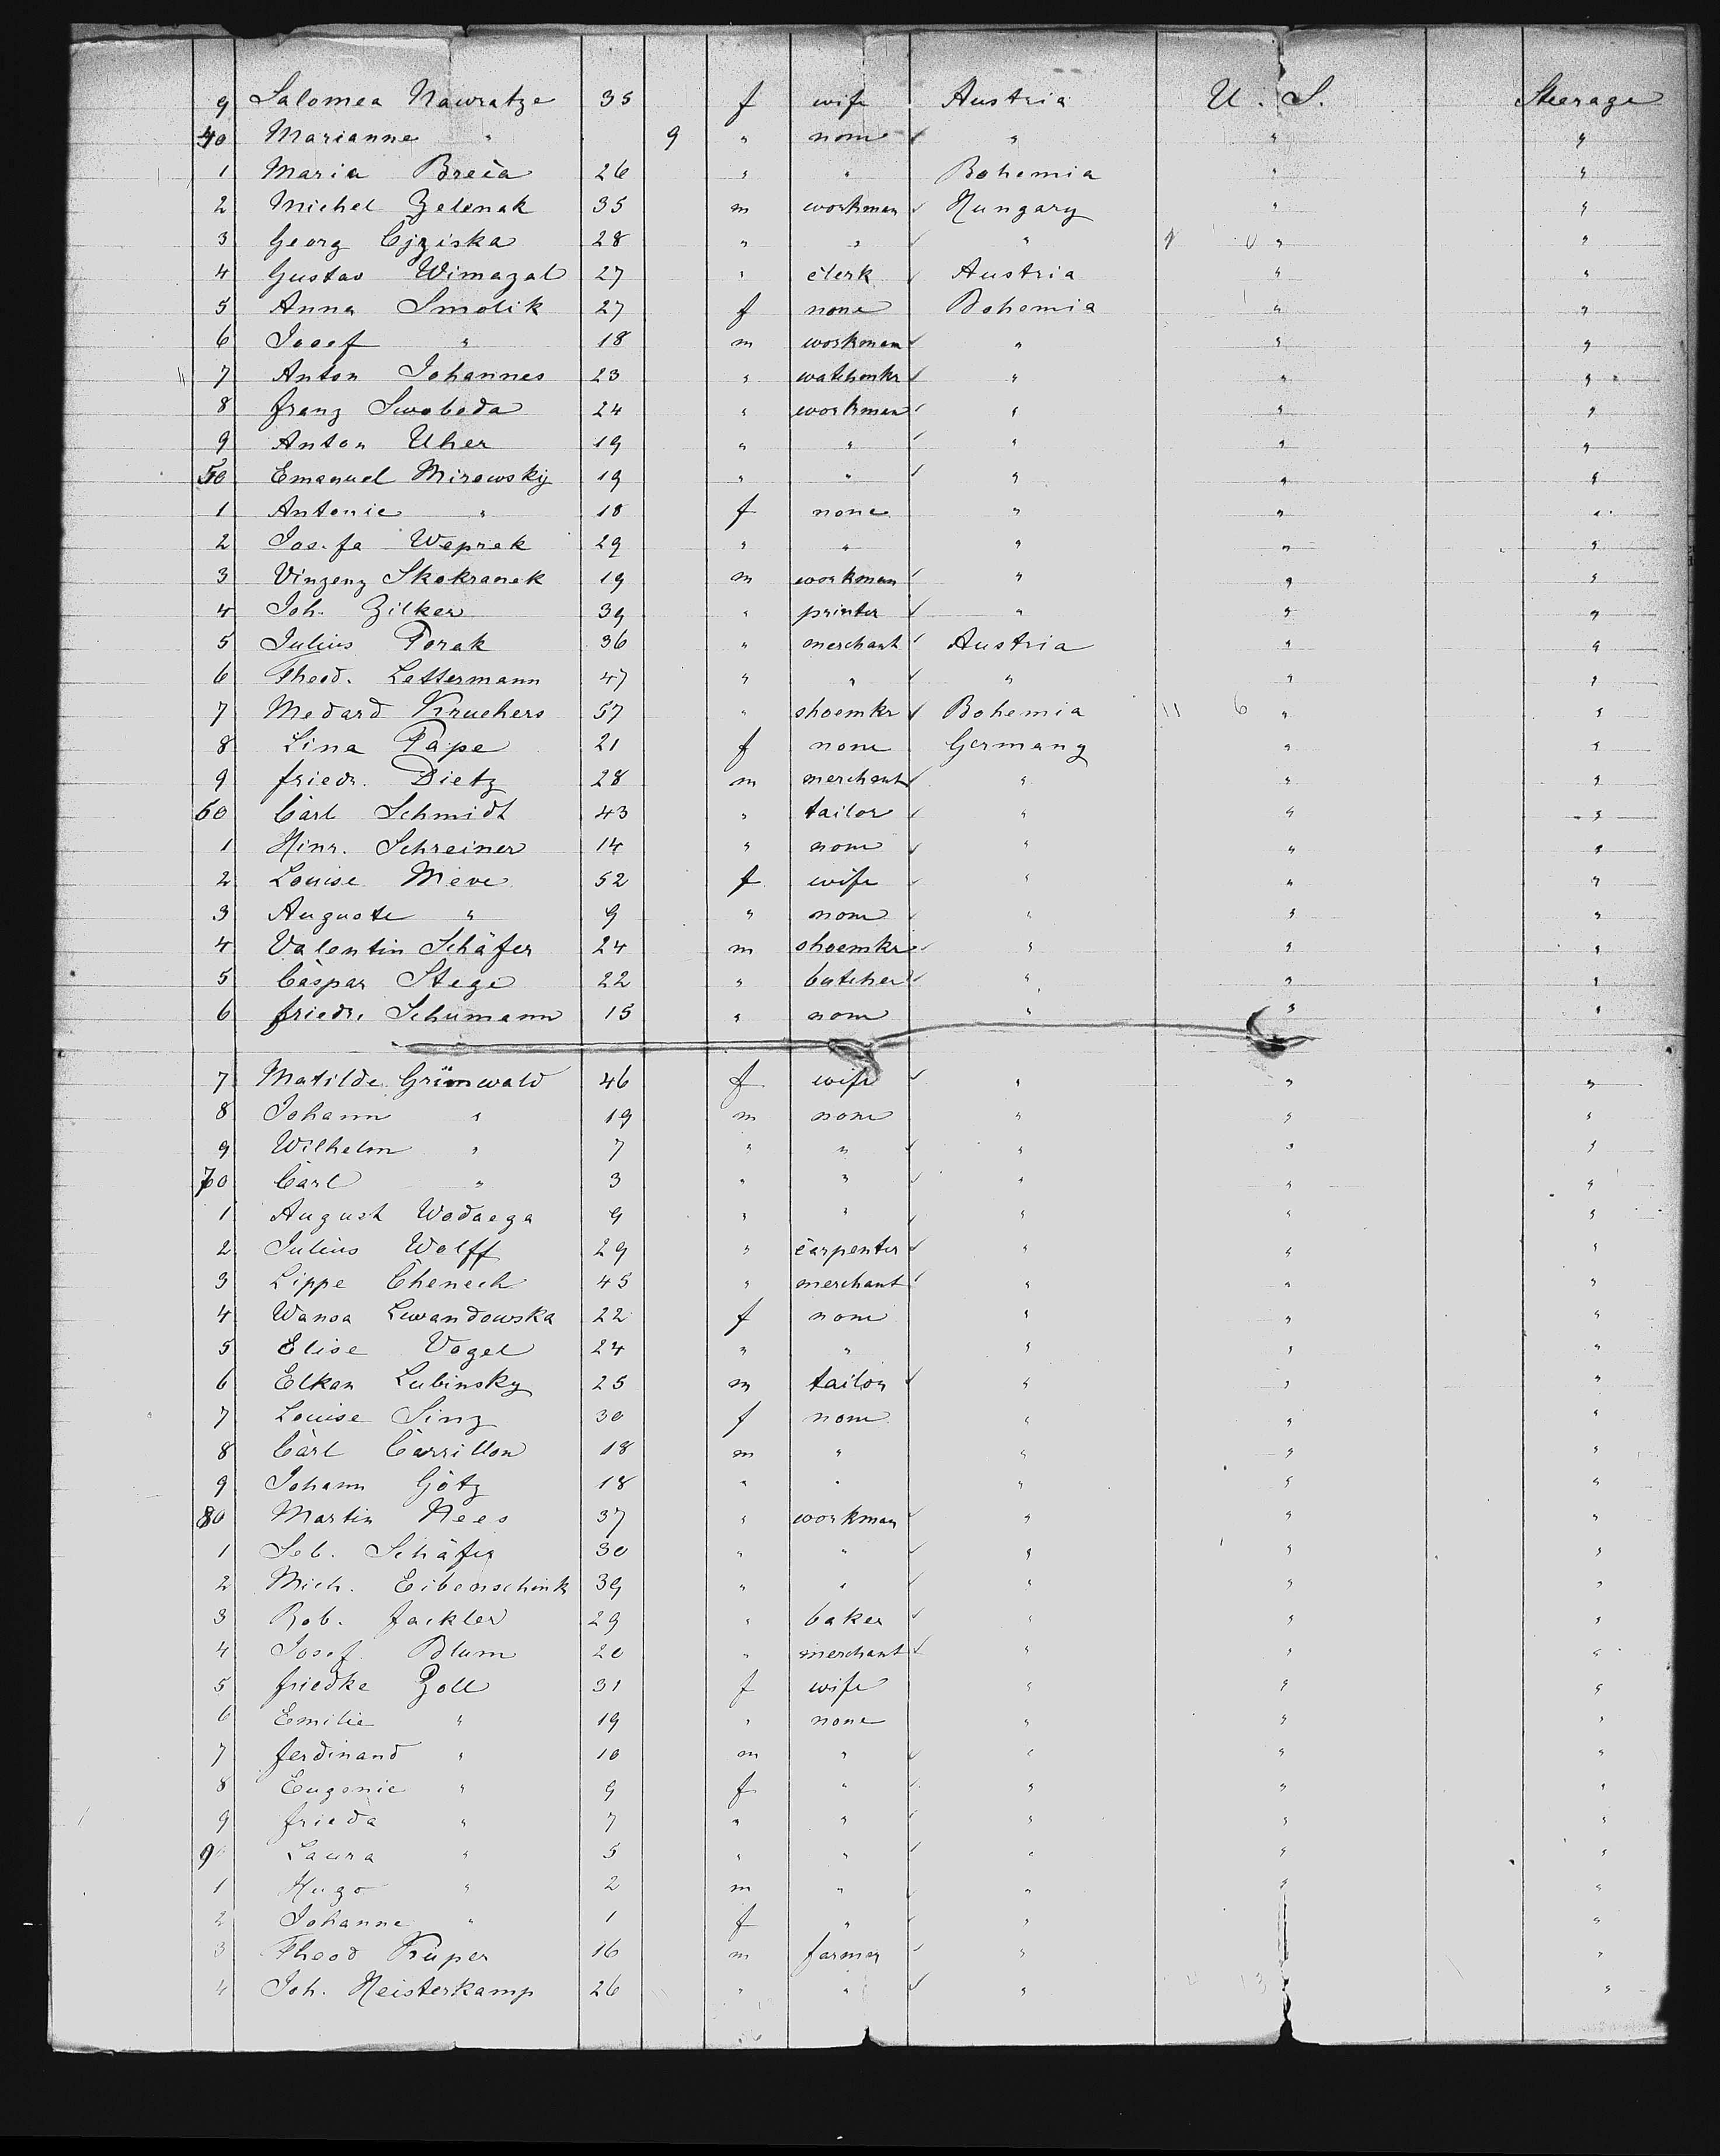 9 Salomea Nawratze 35 f wife Austria U. S. Steerage
40 Marianne " 9 " none " " "
1 Maria Breća 26 " " Bohemia " "
2 Michel Zelenak 35 m workman Hungary " "
3 Georg Cjziska 28 " " " " "
4 Gustav Wimazal 27 " clerk Austria " "
5 Anna Smolik 27 f none Bohemia " "
6 Josef " 18 m workman " " "
7 Anton Johannes 23 " watchmkr " " "
8 Franz Swoboda 24 " workman " " "
9 Anton Uher 19 " " " " "
50 Emanuel Mirowsky 19 " " " " "
1 Antonie " 18 f none " " "
2 Josefa Weprek 29 " " " " "
3 Vinzenz Skokranek 19 m workman " " "
4 Joh. Zilker 39 " printer " " "
5 Julius Porak 36 " merchant Austria " "
6 Theod. Lettermann 47 " " " " "
7 Medard Kruchers 57 " shoemkr Bohemia 11 6 " "
8 Lina Pape 21 f none Germany " "
9 Friedr. Dietz 28 m merchant " " "
60 Carl Schmidt 43 " tailor " " "
1 Hinr. Schreiner 14 " none " " "
2 Louise Meve 52 f wife " " "
3 Auguste " 9 " none " " "
4 Valentin Schäfer 24 m shoemkr " " "
5 Caspar Stege 22 " butcher " " "
6 Friedr. Schumann 15 " none " " "
7 Matilde Grünwald 46 f wife " " "
8 Johann " 19 m none " " "
9 Wilhelm " 7 " " " " "
70 Carl " 3 " " " " "
1 August Wodaega 9 " " " " "
2 Julius Wolff 29 " carpenter " " "
3 Lippe Chenech 45 " merchant " " "
4 Wanda Lewandowska 22 f none " " "
5 Elise Vogel 24 " " " " "
6 Elkan Lubinsky 25 m tailor " " "
7 Louise Sinz 30 f none " " "
8 Carl Carrillon 18 m " " " "
9 Johann Götz 18 " " " " "
80 Martin Nees 37 " workman " " "
1 Seb. Schäfer 30 " " " " "
2 Mich. Eibenschink 39 " " " " "
3 Rob. Fackler 29 " baker " " "
4 Josef Blum 20 " merchant " " "
5 Friedke Zoll 31 f wife " " "
6 Emilie " 19 " none " " "
7 Ferdinand " 10 m " " " "
8 Eugenie " 9 f " " " "
9 Frieda " 7 " " " " "
90 Laura " 5 " " " " "
1 Hugo " 2 m " " " "
2 Johanne " 1 f " " " "
3 Theod Küper 16 m farmer " " "
4 Joh. Heisterkamp 26 " " " " "